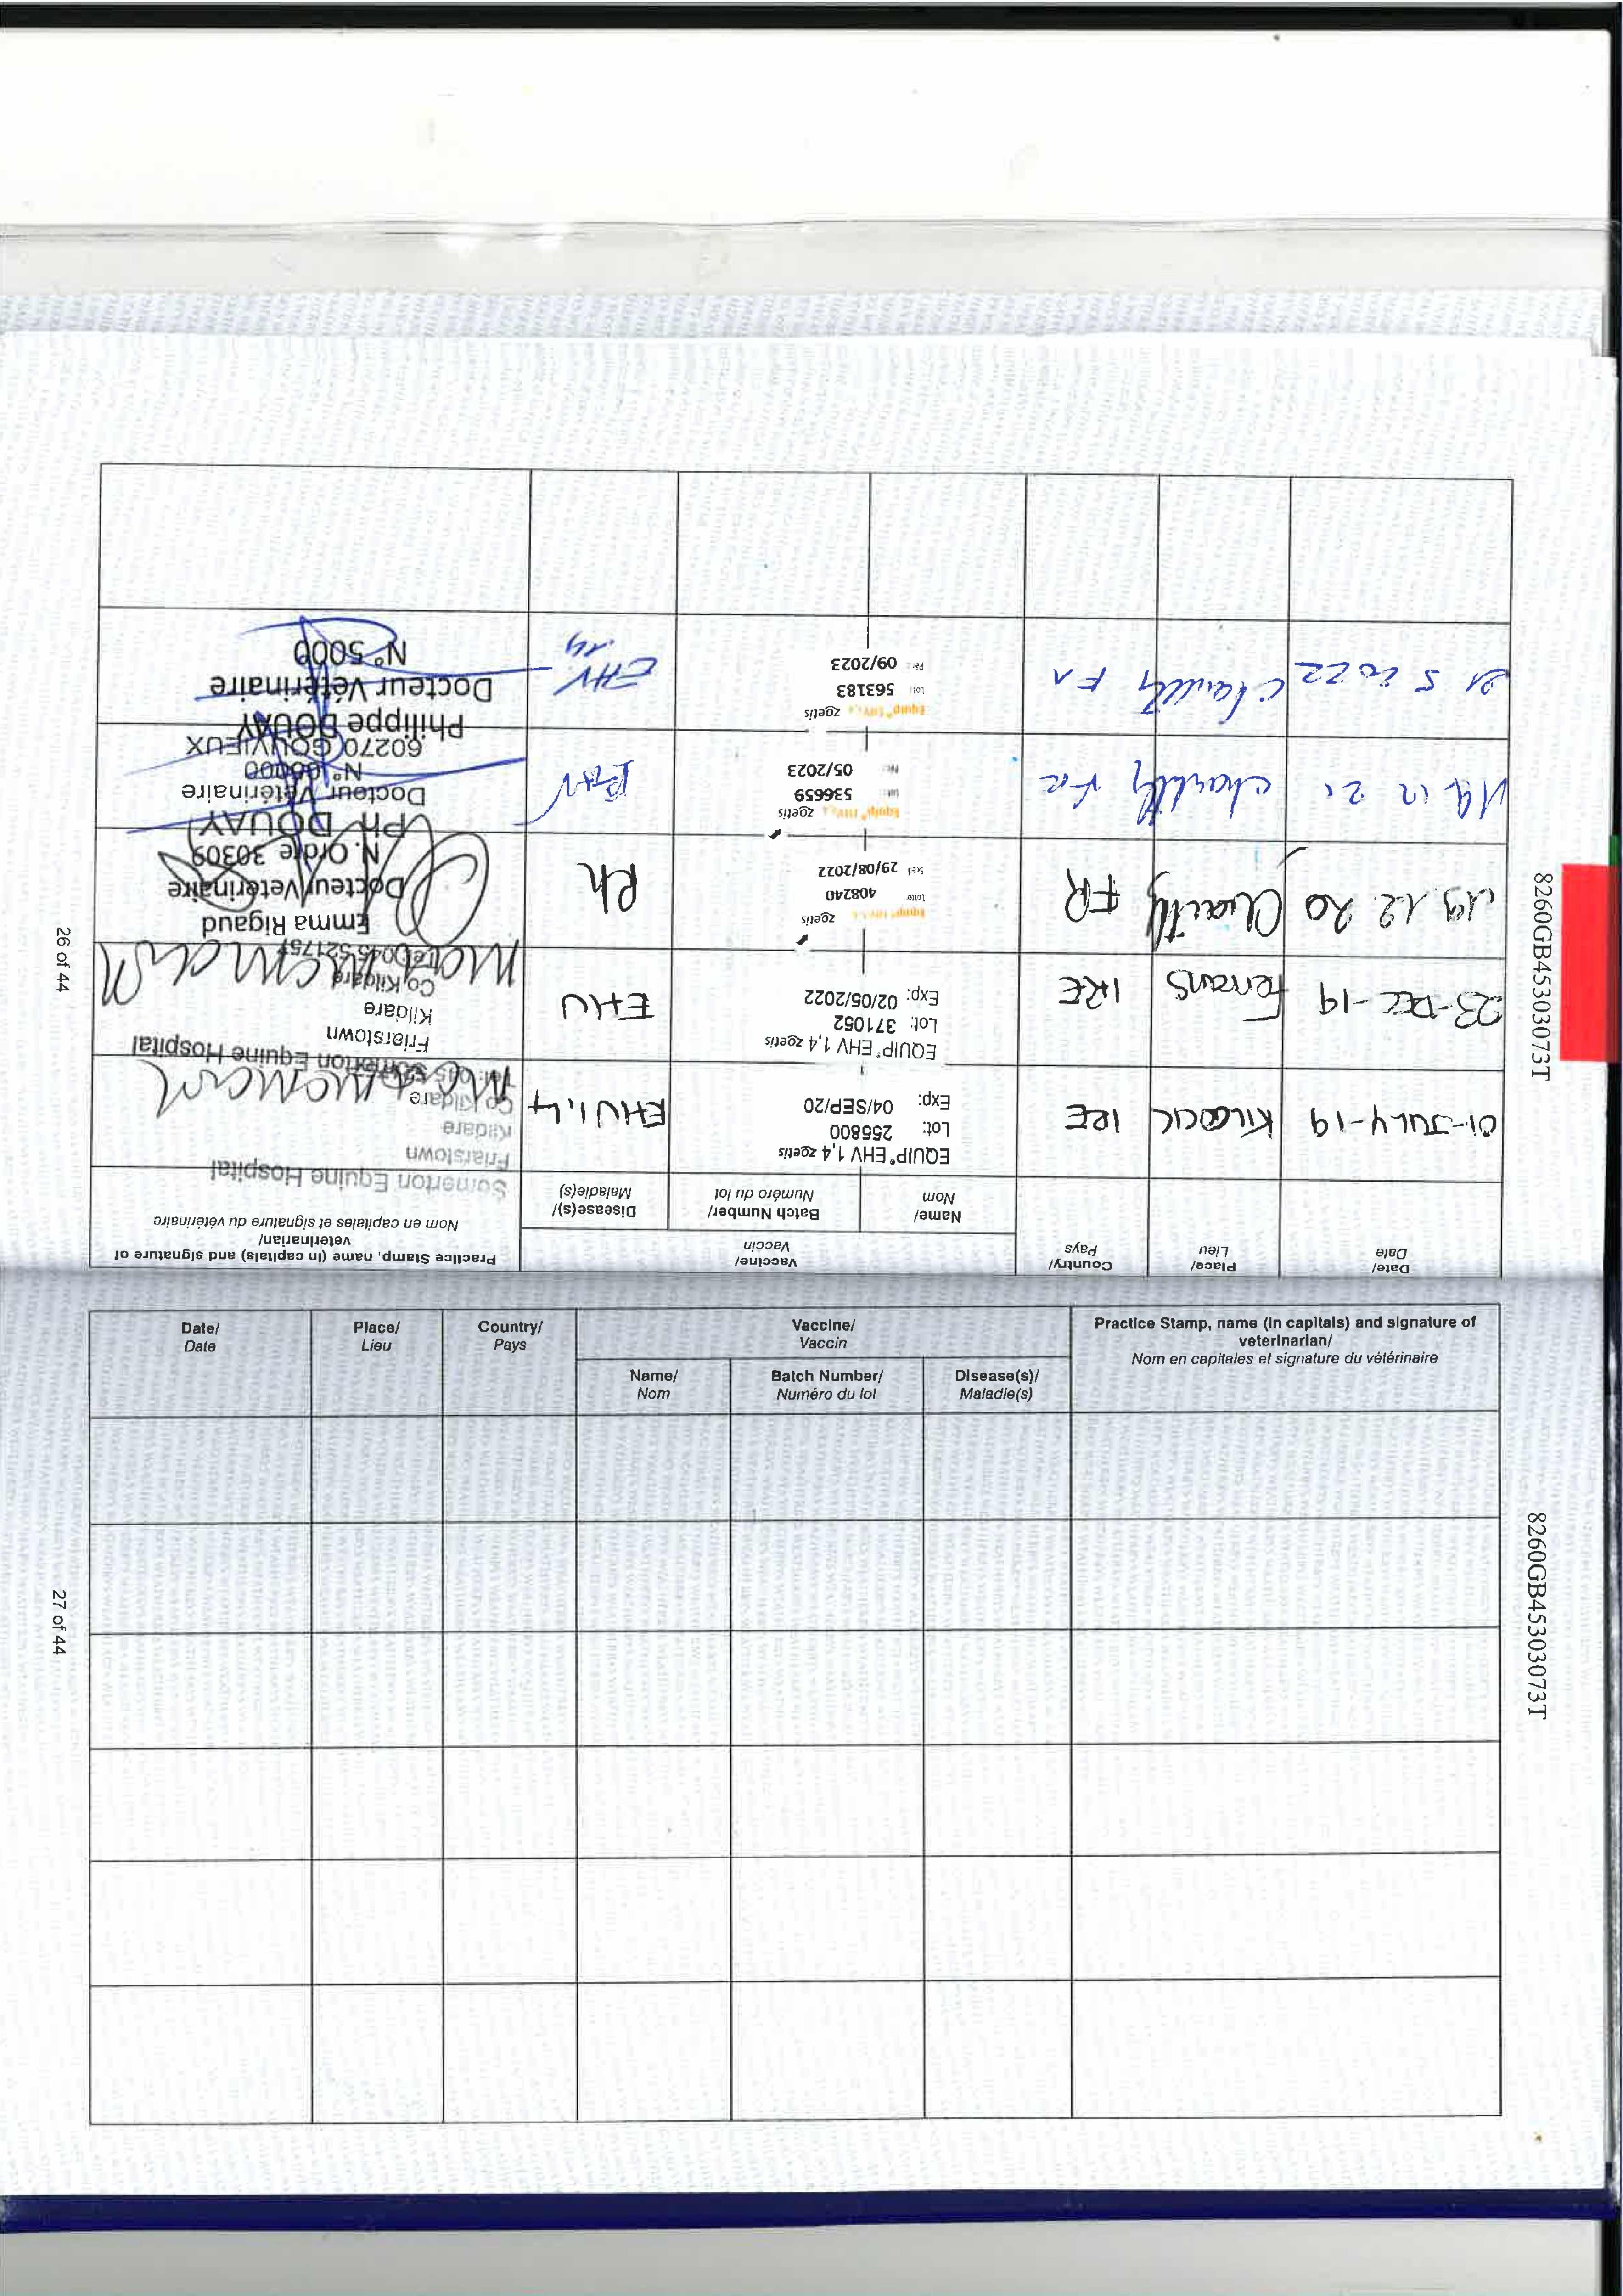 8260GB45303073T
26 of 44
Date/
Date
Place/
Lieu
Country/
Pays
Vaccine/
Vaccin
Name/
Nom
Batch Number/
Numéro du lot
Disease(s)/
Maladie(s)
Practice Stamp, name (in capitals) and signature of
veterinarian/
Nom en capitales et signature du vétérinaire
01-JULY-19
KILCOCK
IRE
EQUIP® EHV 1,4 zoetis
Lot: 255800
Exp: 04/SEP/20
EHV1,4
Somerton Equine Hospital
Friarstown
Kildare
Co Kildare
23-DEC-19
IRE
EQUIP® EHV 1,4 zoetis
Lot: 371052
Exp: 02/05/2022
EHV
Somerton Equine Hospital
Friarstown
Kildare
Co Kildare
19.12.20
Chantilly
FR
Equip® EHV 1,4 zoetis
408240
29/08/2022
Rh
Emma Rigaud
Docteur Vétérinaire
N. Ordre 30309
Chantilly
Equip® EHV 1,4 zoetis
Lot: 536659
05/2023
EHV
Ph. DOUAY
Docteur Vétérinaire
60270 GOUVIEUX
21 5 2022
Chantilly
Equip® EHV 1,4 zoetis
Lot: 563183
09/2023
EHV
1,4
Philippe DOUAY
Docteur Vétérinaire
N° 5000
Date/
Date
Place/
Lieu
Country/
Pays
Vaccine/
Vaccin
Name/
Nom
Batch Number/
Numéro du lot
Disease(s)/
Maladie(s)
Practice Stamp, name (in capitals) and signature of
veterinarian/
Nom en capitales et signature du vétérinaire
8260GB45303073T
27 of 44